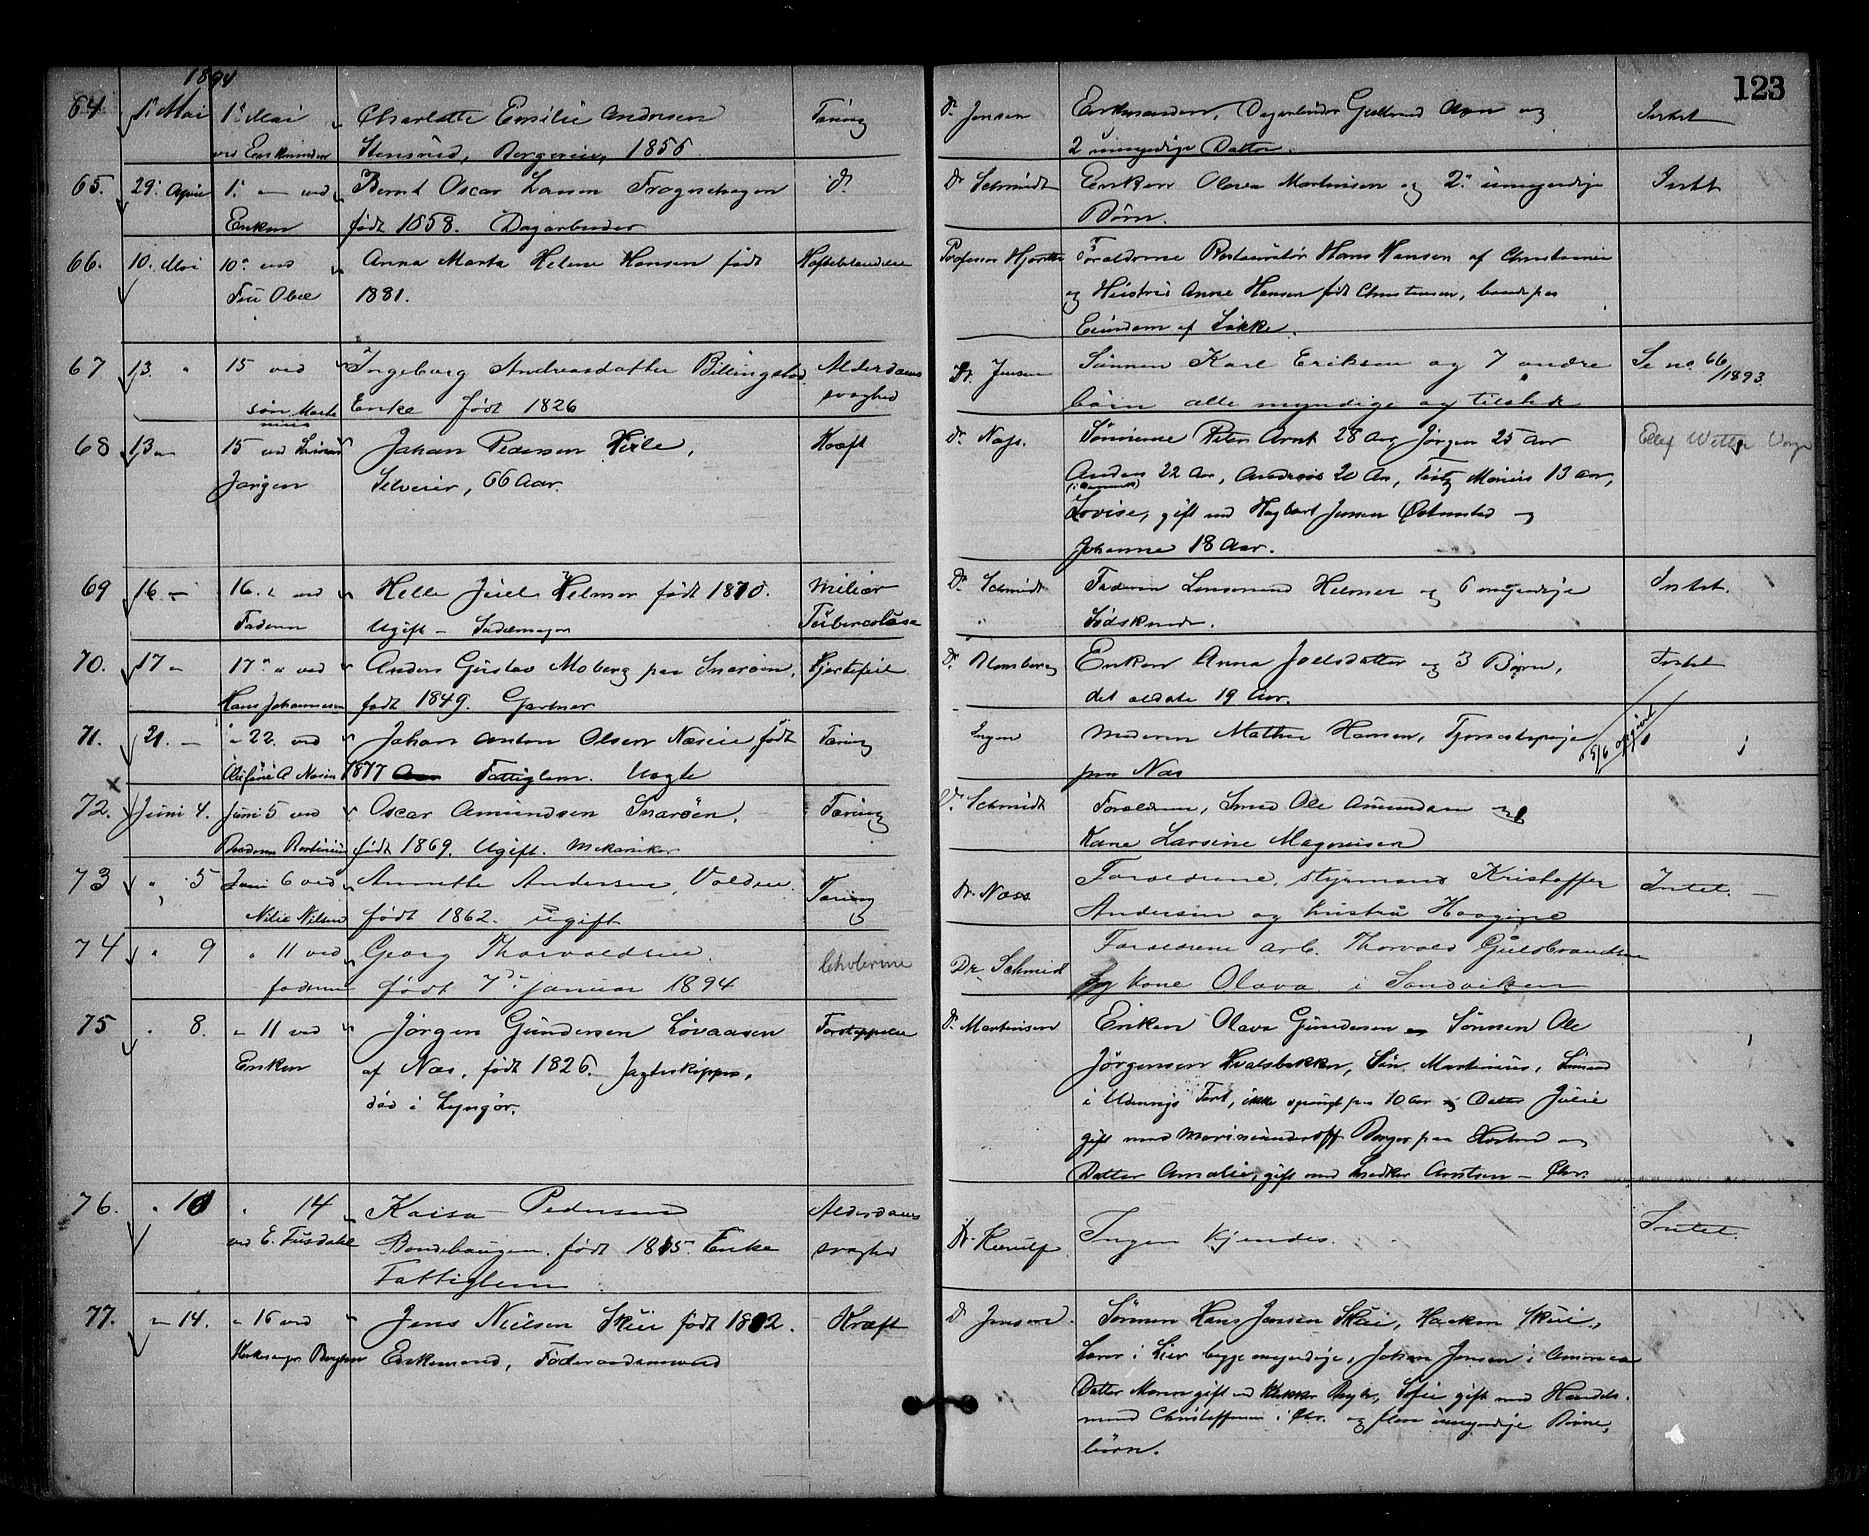 123
1894
64. 1' Mai 1' Mai Charlotte Emilie Andresen Tæring Dr. Jensen Enkemanden, Dagarbeider Gulbrand og Intet
ved Enkemanden Stensrud, Bergerveie, 1856 2 umyndige Døttre.
65. 29. April 1. — ved Bernt Oscar Larsen Frognehagen do. Dr Schmidt Enken Olava Martinsen og 2 umyndige Intet
Enken født 1858. Dagarbeider Børn.
66. 10. Mai 10. ved Anna Marta Helene Hansen født Professor Hjort Forældrene Restauratør Hans Hansen af Christiania
Fru Obel 1881. og Hustru Anne Hansen født Christensen, boende paa
Eiendom af Løkke.
67 13. " 15 ved Ingeborg Andreasdatter Billingstad Alderdoms Dr. Jensen Sønnen Karl Eriksen og 7 andre Se no. 66/1893.
søn Marte nius Enke født 1826 svaghed børn alle myndige og tilstede
68 13 — 15 ved Johan Pedersen Kræft Dr. Næss. Sønnerne Peter Arnt 28 Aar, Jørgen 25 Aar
Jørgen Selveier, 66 Aar. Anders 22 Aar, Andreas 20 Aar, Marius 13 aar,
Lovise, gift med Hagbart Jensen og
Johanne 18 Aar.
69 16 — 16. ved Helle Juel Helmer født 1870. Miliær Dr. Schmidt Faderen Lensmand Helmer og 6 myndige Intet.
Faderen Ugift — Sadelmager Tuberculose Sødskende.
70. 17 — 17 " ved Anders Gustav Moberg paa Snarøen. Hjertefeil Dr. Blomberg Enken Anna Joelsdatter og 3 Børn, Intet
Hans Johannesen født 1849. Gartner det ældste 19 Aar.
71. 21. — " 22. ved Johan Anton Olsen Næsveie, født Tæring Ingen Moderen Mathea Hansen, Tjenestepige
1877 Fattiglem. Ugift paa Næs
72. Juni 4. Juni 5 ved Oscar Amundsen Snarøen. Tæring Dr. Schmidt Forældrene, Smed Ole Amundsen og
Broderen født 1869. Ugift. Mekaniker Kone Larsine Magnusen
73 " 5 Juni 6 ved Annette Andersen, Volden. Tæring Dr. Næss Forældrene, Styrmand Kristoffer Intet. —
Nilie Nilsen født 1862. ugift Andersen og hustru
74 " 9 " 11 ved Georg Thorvaldsen. Cholerine Dr. Schmidt Forældrene arb. Thorvald Guldbrandsen
faderen født 7de januar 1894 og kone Olava i Sandviken
75 " 8. " 11 ved Jørgen Gundersen Løvaasen Forstoppelse Dr. Martinsen Enken Olava Gundersen og Sønnen Ole
Enken af Næs, født 1826. Jagtskipper, Jørgensen Hvalsbakken, Søn Martinius, Sømand
død i Lyngør. i Udenrigs Fart, ikke spurgt paa 10 Aar og Datter Julie
gift med Marineunderoff Berger paa Horten og
Datter Amalie, gift med Snedker Arntsen — Chr.
76. " 10 " 14 Kaisa Pedersen Alderdoms Dr. Kierulf Ingen kjendes. Intet.
ved E. Tusdahl Bondehaugen. født 1815. Enke svaghed
Fattiglem
77. " 14. " 16 ved Jens Nielsen Skui født 1802. Kræft Dr. Jensen. Sønnen Hans Jensen Skui, Haaken Skui,
Enkemand, Føderaadsmand Lærer i Lier begge myndige, Johan Jensen i Amerika
Datter Maren gift med Sofie gift med Handels-
mand Christoffersen i Chr. og flere umyndige Børne-
børn.